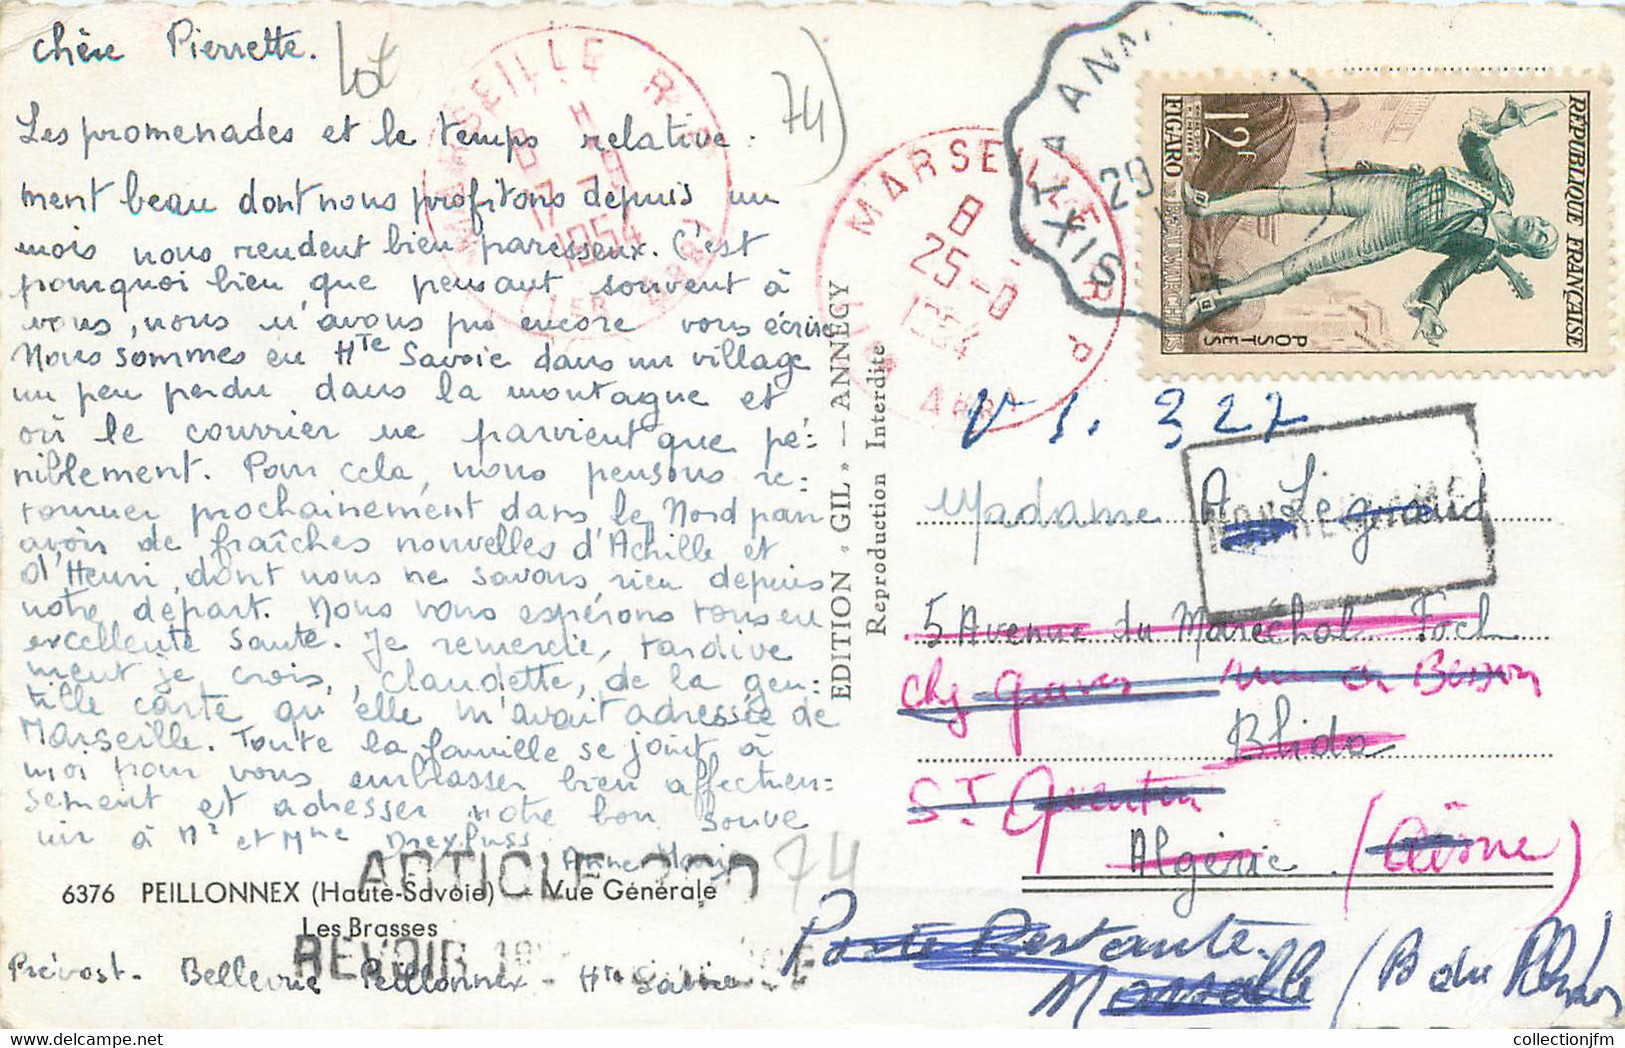 chère Pierrette.
lot
74)
Les promenades et le temps relative-
ment beau dont nous profitons depuis un
mois nous rendent bien paresseux. C'est
pourquoi bien que pensant souvent à
vous, nous n'avons pas encore vous écrire
Nous sommes en Hte Savoie dans un village
un peu perdu dans la montagne et
où le courrier ne parvient que pé-
niblement. Pour cela, nous pensons re-
tourner prochainement dans le Nord par
avoir de fraîches nouvelles d'Achille et
d'Henri, dont nous ne savons rien depuis
notre départ. Nous vous espérons tous en
excellente santé. Je remercie, tardive
ment je crois, Claudette, de la gen-
tille carte qu'elle m'avait adressée de
Marseille. Toute la famille se joint à
moi pour vous embrasser bien affectueu-
sement et adresser notre bon souve
nir à Mr et Mme Dreyfuss
Anne Marie
74
6376 PEILLONNEX (Haute-Savoie) Vue Générale
Les Brasses
Prévost. Bellevue Peillonnex - Hte Savoie
ARTICLE
REVOIR
EDITION « GIL » — ANNECY
Reproduction Interdite
MARSEILLE R.P.
8 H
17 -9
1954
MARSEILLE R P
8
25-9
1954
TAXIS A ANN
29
RÉPUBLIQUE FRANÇAISE
POSTES
12F
FIGARO
BEAUMARCHAIS
V S. 327
Madame A. Légraud
5 Avenue du Maréchal Foch
chez
Besson
Blida
St Quentin
Algérie (Aisne)
Poste Restante.
Marseille (B du Rhône)
collectionjfm